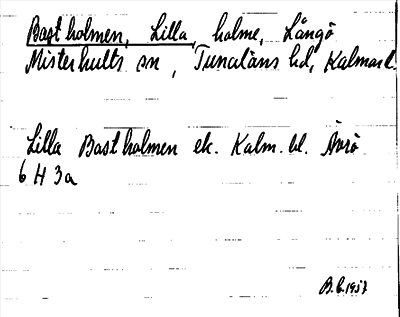 Bastholmen, Lilla, holme, Långö
Misterhults sn, Tunaläns hd, Kalmar l.
Lilla Bastholmen ek. Kalm. bl. Ävrö
6 H 3a
B.G. 1957